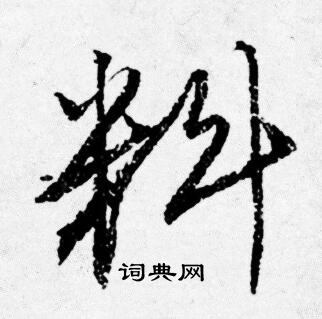 料
词典网